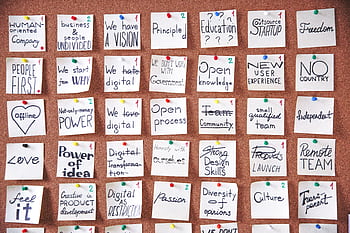 HUMAN
oriented
Company
business
&
people
UNDIVIDED
We have
A VISION
Principle
Education
? ? ?
Outsource
STARTUP
Freedom
PEOPLE
FIRST
We start
from WHY
We hate
digital
WE DON'T WORK
WITH
Government
Open
knowledge
NEW
USER
EXPERIENCE
NO
COUNTRY
offline
Not-only-money
POWER
We love
digital
Open
process
Team
Community
small
qualified
team
Independent
Love
Power of
idea
Digital
Transformation
Honesty with
ourselves
Strong
Design
Skills
LAUNCH
Remote
TEAM
feel
it
Creative
PRODUCT
development
Digital
AS
Passion
Diversity
of
opinions
Culture
Transparent
WE DON'T